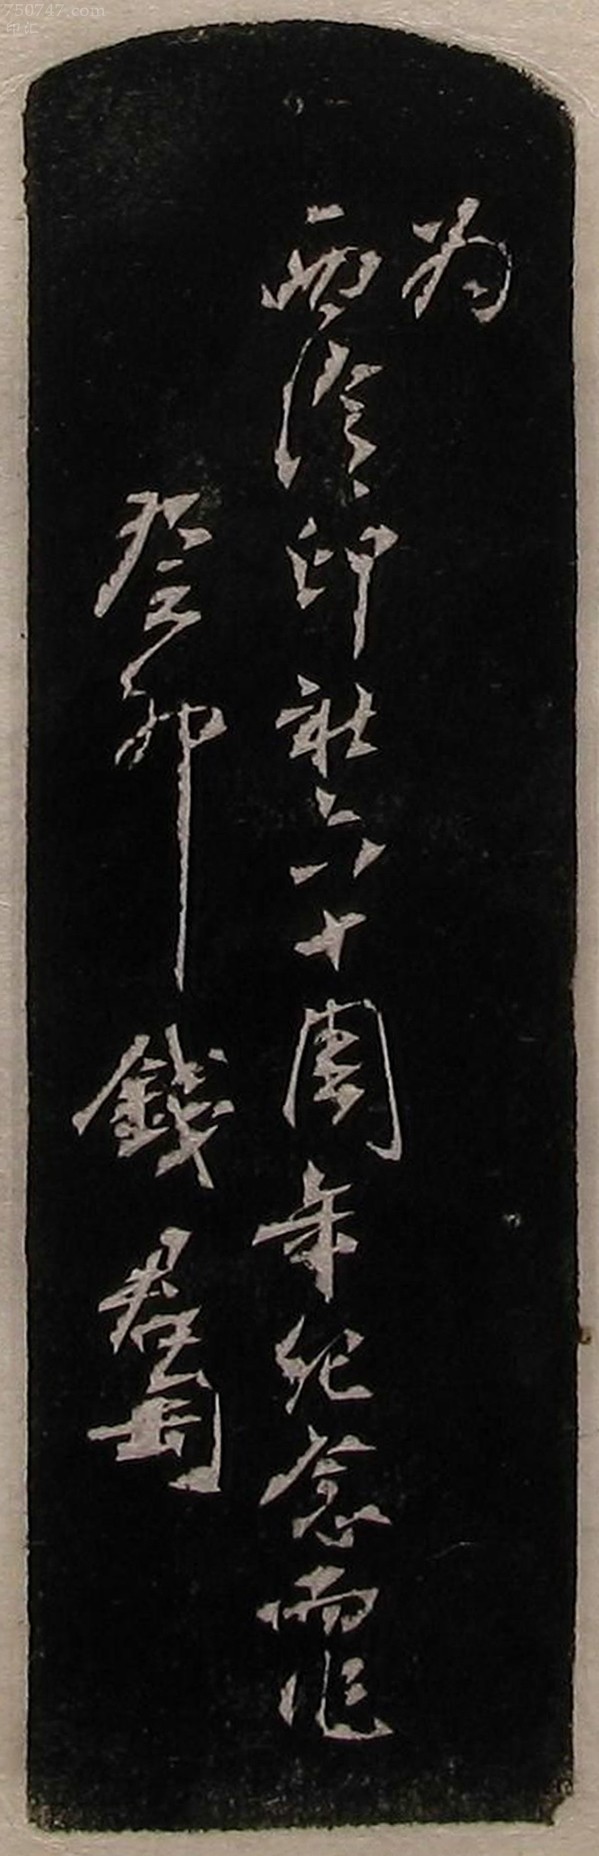 為
西泠印社六十周年紀念而作
癸卯 錢君匋
750747.com